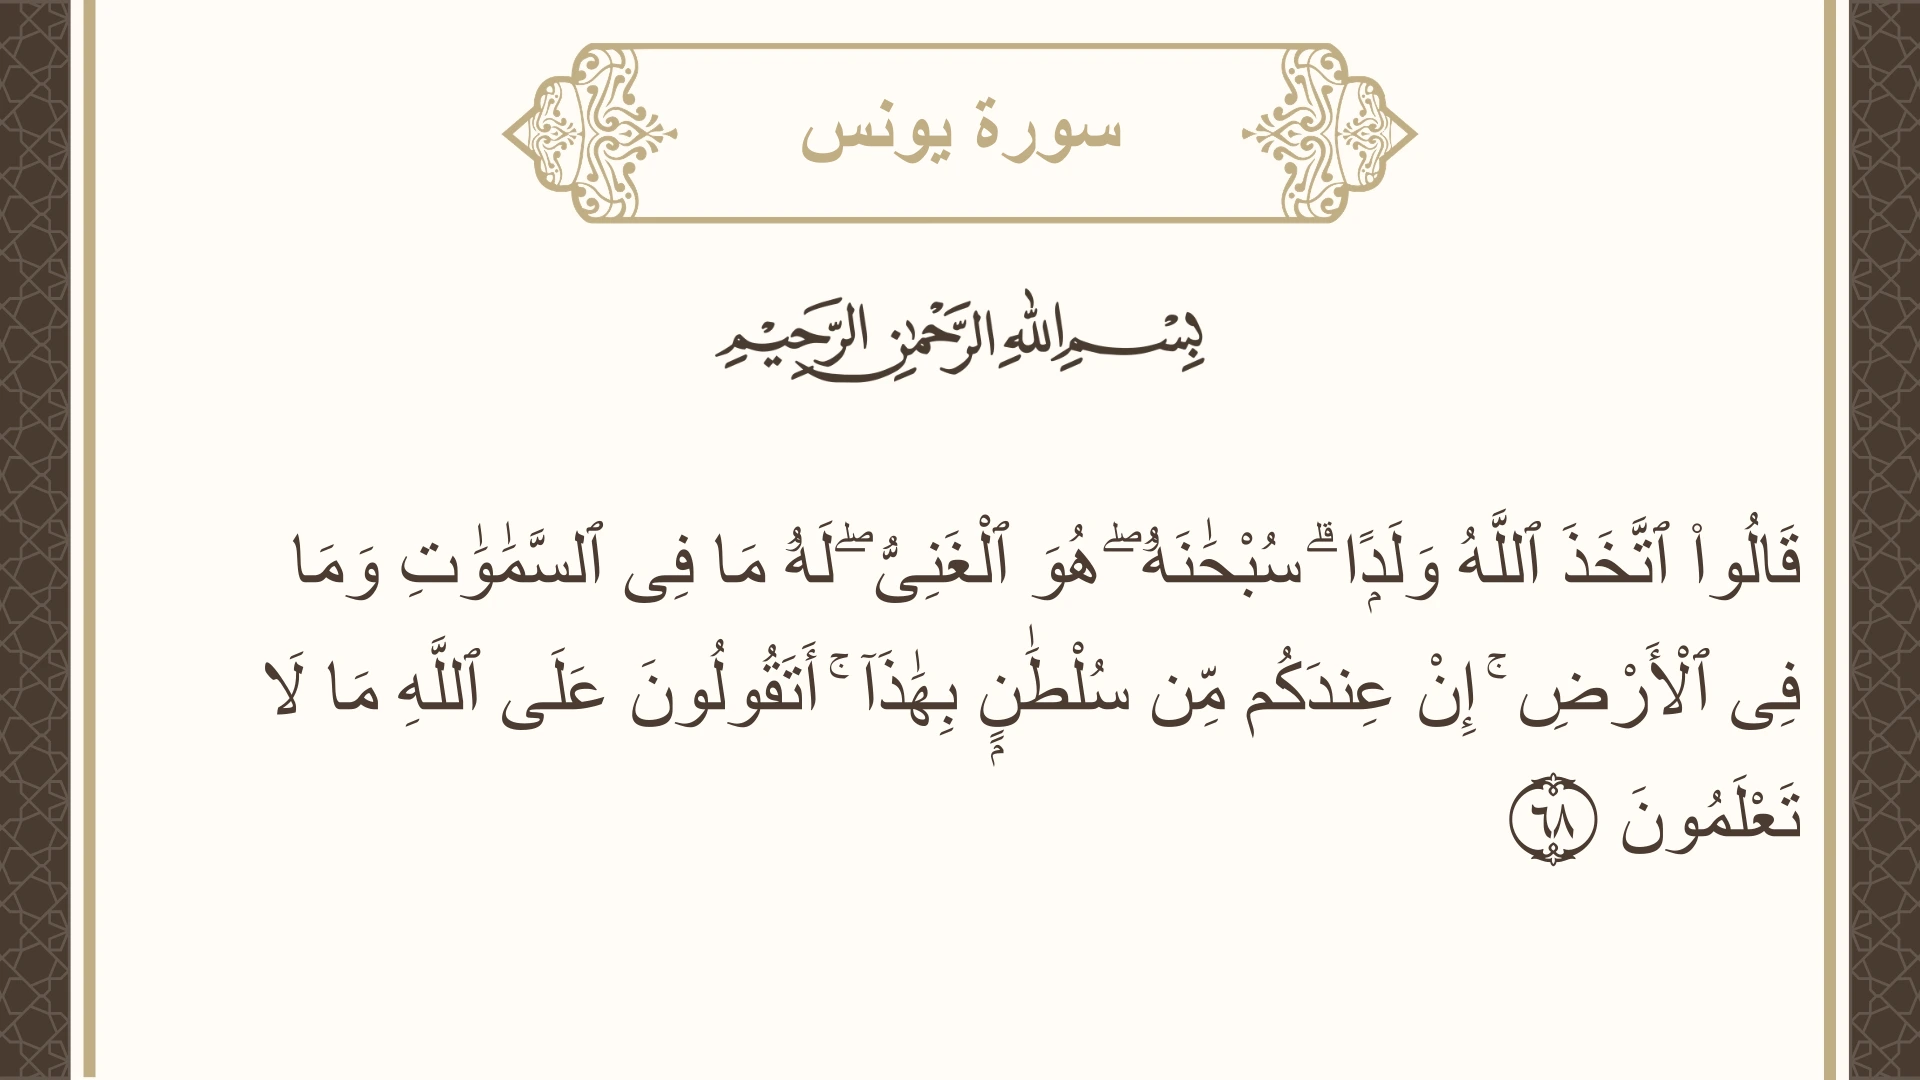 سورة يونس
بِسْمِ اللهِ الرَّحْمٰنِ الرَّحِيْمِ
قَالُوا۟ ٱتَّخَذَ ٱللَّهُ وَلَدًۭا ۗ سُبْحَـٰنَهُۥ ۖ هُوَ ٱلْغَنِىُّ ۖ لَهُۥ مَا فِى ٱلسَّمَـٰوَٰتِ وَمَا
فِى ٱلْأَرْضِ ۚ إِنْ عِندَكُم مِّن سُلْطَـٰنٍۭ بِهَـٰذَآ ۚ أَتَقُولُونَ عَلَى ٱللَّهِ مَا لَا
تَعْلَمُونَ ٦٨